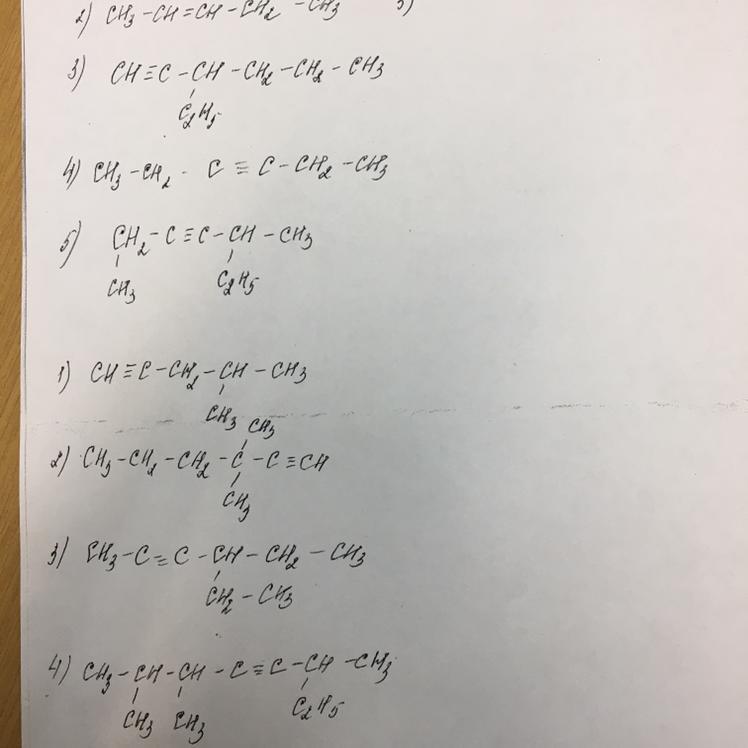 2) CH₃ - CH = CH - CH₂ - CH₃ 5)
3) CH ≡ C - CH - CH₂ - CH₂ - CH₃
C₂H₅
4) CH₃ - CH₂ - C ≡ C - CH₂ - CH₃
5) CH₂ - C ≡ C - CH - CH₃
CH₃ C₂H₅
1) CH ≡ C - CH₂ - CH - CH₃
CH₃
CH₃
2) CH₃ - CH₂ - CH₂ - C - C ≡ CH
CH₃
3) CH₃ - C ≡ C - CH - CH₂ - CH₃
CH₂ - CH₃
4) CH₃ - CH - CH - C ≡ C - CH - CH₃
CH₃ CH₃ C₂H₅